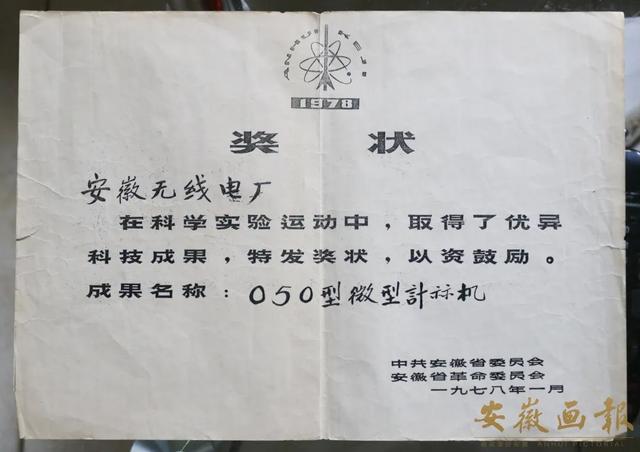 ANHUI KEJI
1978
奖状
安徽无线电厂
在科学实验运动中，取得了优异
科技成果，特发奖状，以资鼓励。
成果名称：050型微型計祘机
中共安徽省委员会
安徽省革命委员会
一九七八年一月
安徽画报
ANHUI PICTORIAL